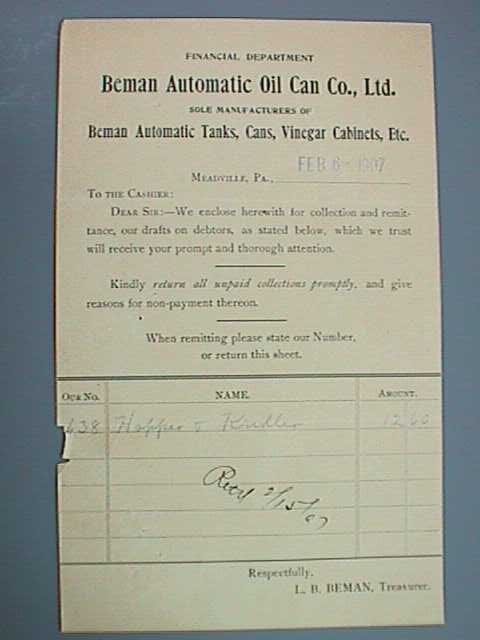 FINANCIAL DEPARTMENT
Beman Automatic Oil Can Co., Ltd.
SOLE MANUFACTURERS OF
Beman Automatic Tanks, Cans, Vinegar Cabinets, Etc.
FEB 6 - 1907
MEADVILLE, PA.,
TO THE CASHIER:
DEAR SIR:—We enclose herewith for collection and remit-
tance, our drafts on debtors, as stated below, which we trust
will receive your prompt and thorough attention.
Kindly return all unpaid collections promptly, and give
reasons for non-payment thereon.
When remitting please state our Number,
or return this sheet.
OUR NO. NAME. AMOUNT.
638 Hopper & 12 60
2/15/07
Respectfully,
L. B. BEMAN, Treasurer.